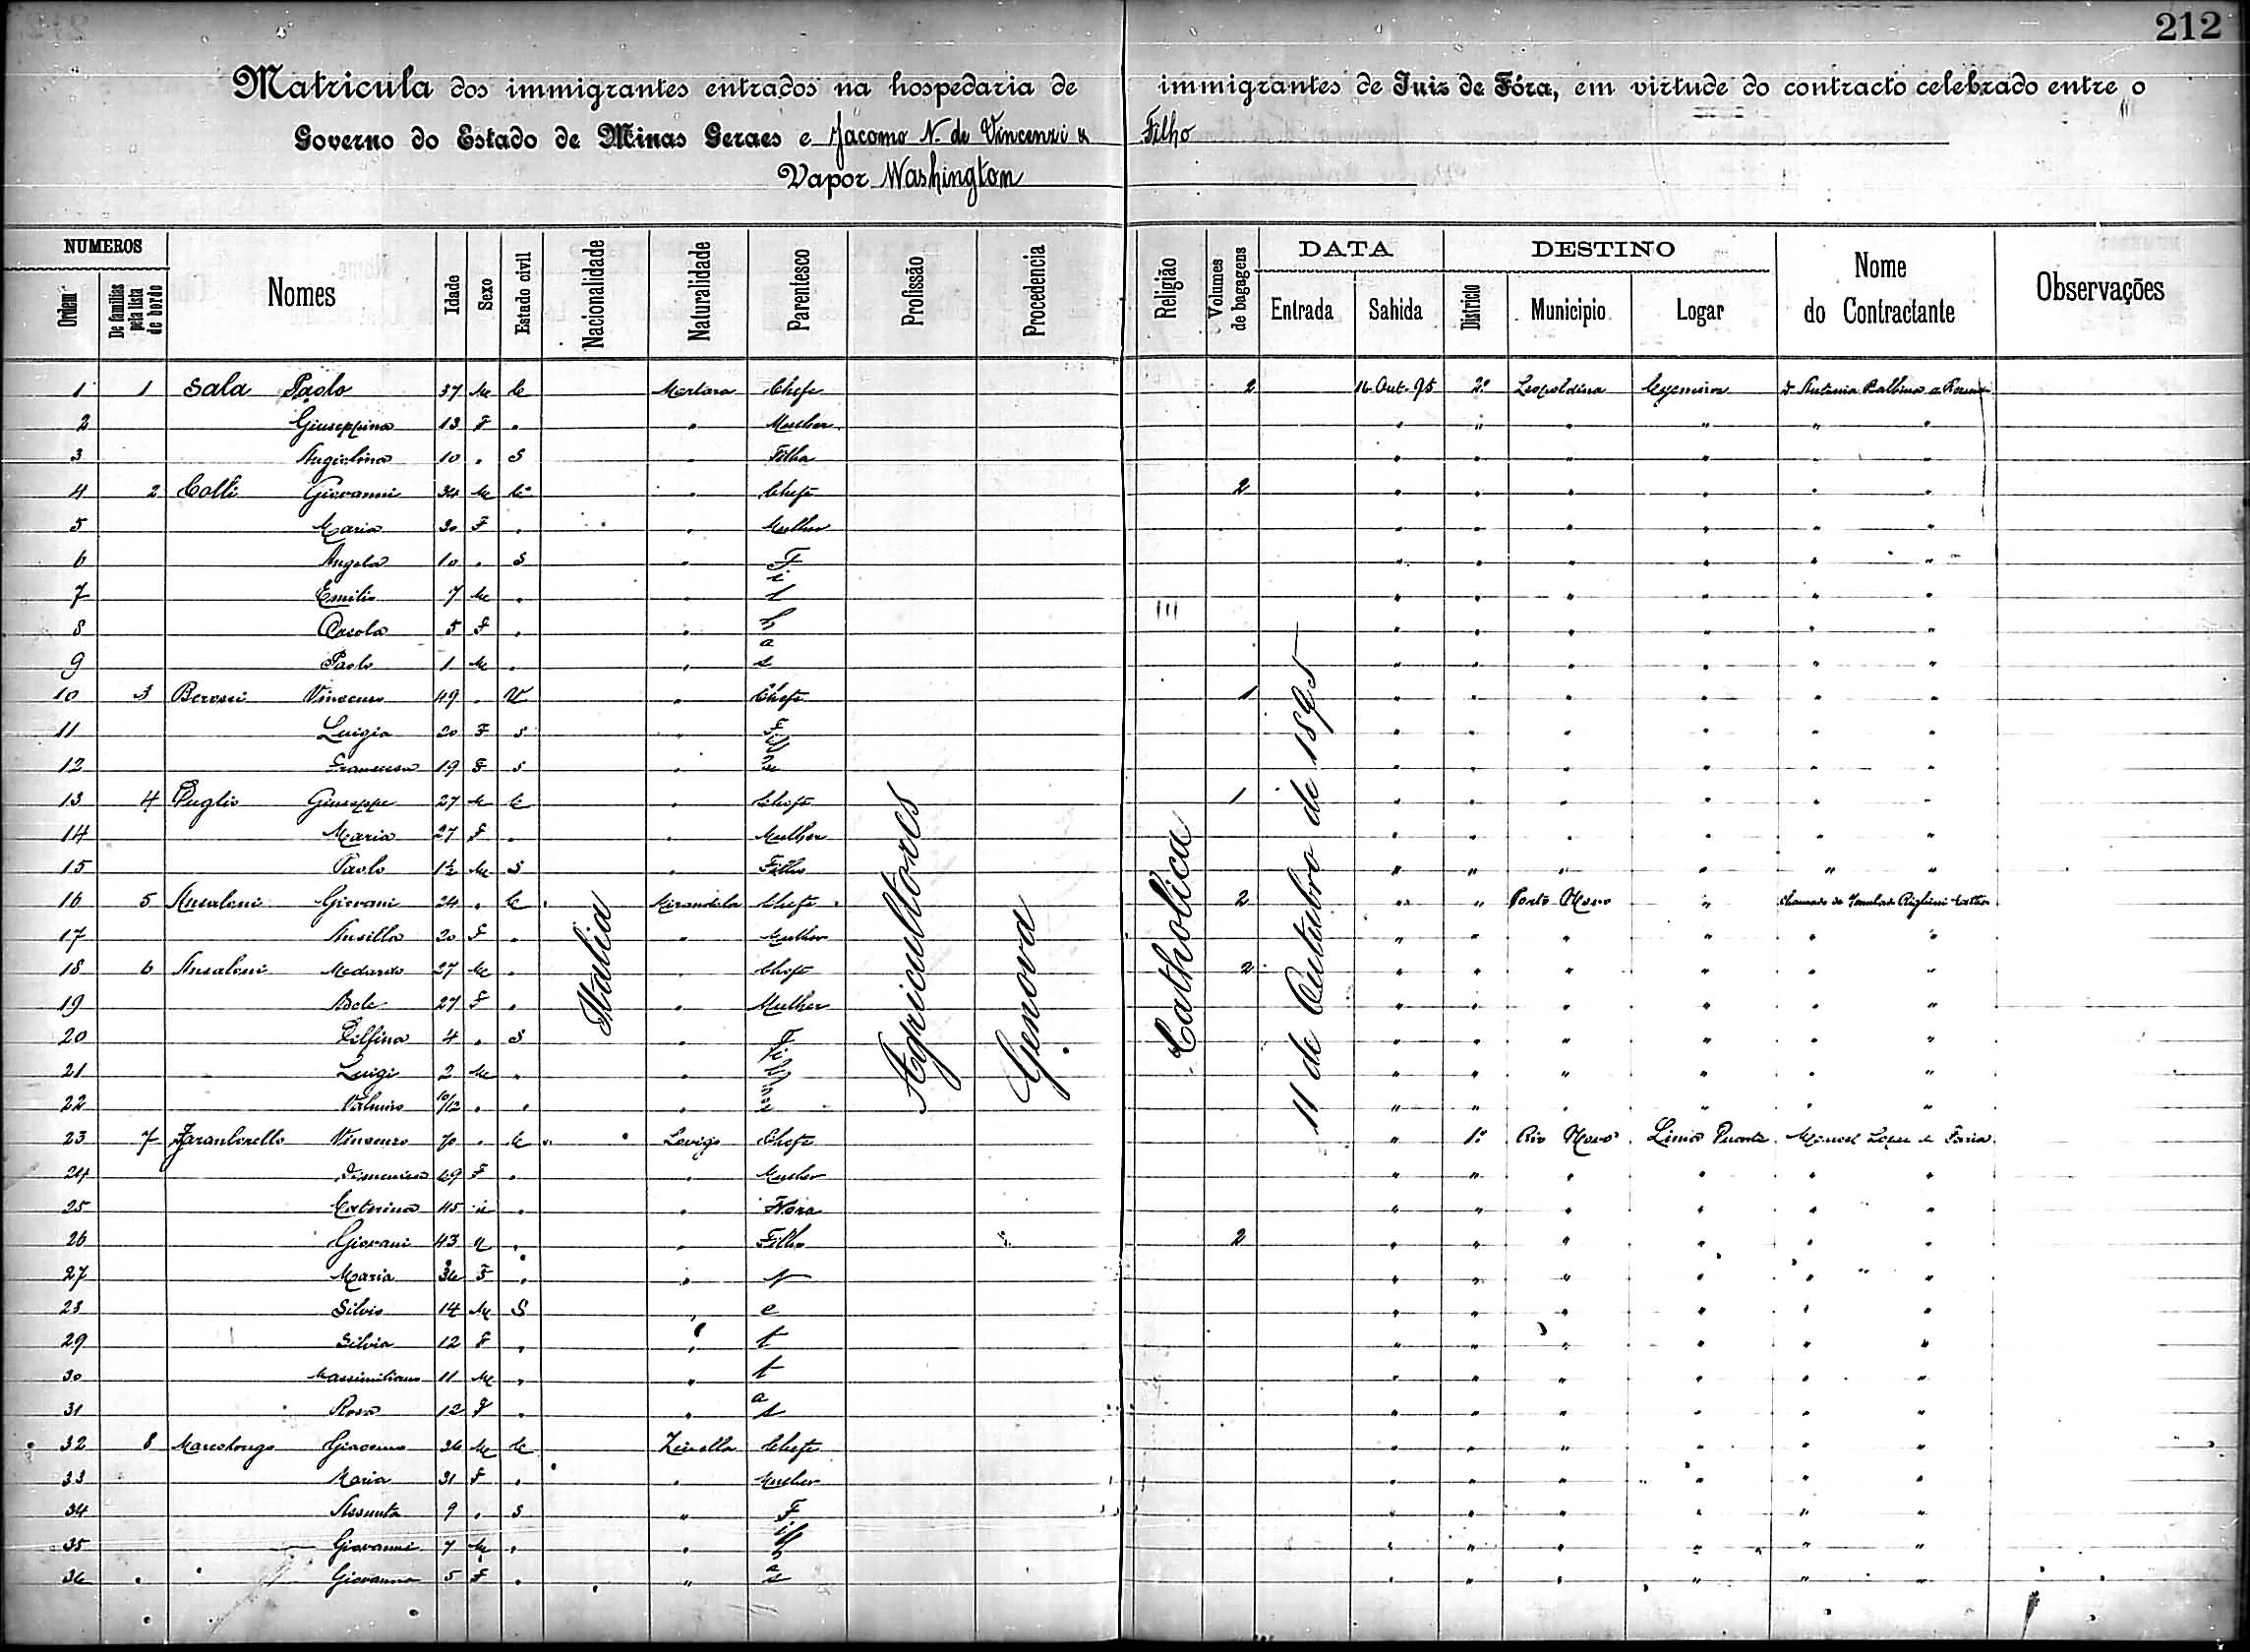 212
Matricula dos immigrantes entrados na hospedaria de immigrantes de Juiz de Fóra, em virtude do contracto celebrado entre o
Governo do Estado de Minas Geraes e Jacomo N. de Vincenzi & Filho
Vapor Washington
NUMEROS
Ordem
De familias pela lista de bordo
Nomes
Idade
Sexo
Estado civil
Nacionalidade
Naturalidade
Parentesco
Profissão
Procedencia
Religião
Volumes de bagagens
DATA
Entrada
Sahida
DESTINO
Districto
Municipio
Logar
Nome do Contractante
Observações
1 1 Sala Paolo 37 M C Mortara Chefe 2 16 Out. 95 2º Leopoldina
2 Giuseppina 13 F " " Mulher " " " " " "
3 Angiolina 10 " S " Filha " " " " " "
4 2 Colli Giovanni 34 M C " Chefe 2 " " " " " "
5 Maria 30 F " " Mulher " " " " " "
6 Angela 10 " S " Filhas " " " " " "
7 Emilio 7 M " " " " " " " "
8 5 F " " " " " " " "
9 Paolo 1 M " " " " " " " "
10 3 49 " V " Chefe 1 " " " " " "
11 Luigia 20 F S " " " " " " "
12 Francesca 19 F S " " " " " " "
13 4 Puglio Giuseppe 27 M C " Chefe 1 " " " " " "
14 Maria 27 F " " Mulher " " " " " "
15 Paolo 1½ M S " Filho " " " " " "
16 5 Ansaloni Giovani 24 " C Mirandola Chefe 2 " " Porto Novo "
17 20 F " " Mulher " " " " " "
18 6 Ansaloni Medardo 27 M " " Chefe 2 " " " " " "
19 27 F " " Mulher " " " " " "
20 Delfina 4 " S " Filhos " " " " " "
21 Luigi 2 M " " " " " " " "
22 10/12 " " " " " " " " "
23 7 Vincenzo 70 " C Chefe " 1º Rio Novo Manoel Lopes de Faria
24 69 F " " Mulher " " " " " "
25 Caterina 45 " " " Nora " " " " " "
26 Giovani 43 " " Filho 2 " " " " " "
27 Maria 36 F " " Nettas " " " " " "
28 Silvio 14 M S " " " " " " "
29 Silvia 12 F " " " " " " " "
30 Massimiliano 11 M " " " " " " " "
31 Rosa 12 F " " " " " " " "
32 8 Marcolongo Giacomo 36 M C Chefe " " " " " "
33 Maria 31 F " " Mulher " " " " " "
34 Assunta 9 " S " Filhas " " " " " "
35 Giovanni 7 M " " " " " " " "
36 Giovanna 5 F " " " " " " " "
Italia
Agricultores
Genova
Catholica
11 de Outubro de 1895